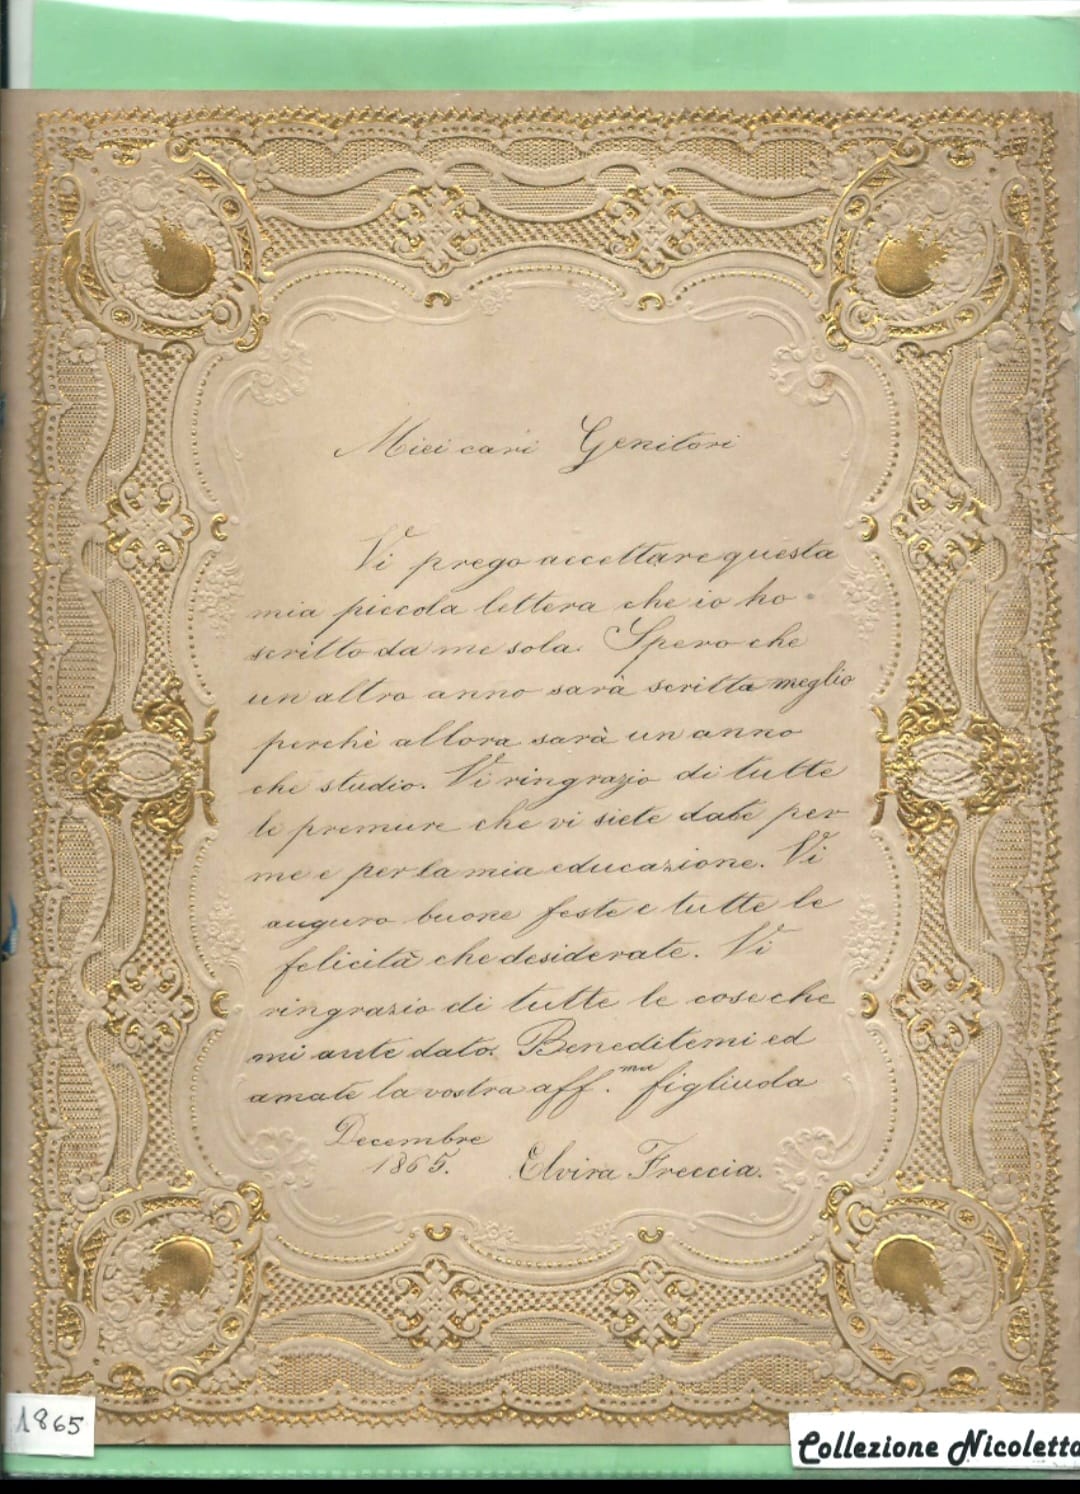 Miei cari Genitori
Vi prego accettare questa
mia piccola lettera che io ho
scritto da me sola. Spero che
un altro anno sarà scritta meglio
perchè allora sarà un anno
che studio. Vi ringrazio di tutte
le premure che vi siete date per
me e per la mia educazione. Vi
auguro buone feste e tutte le
felicità che desiderate. Vi
ringrazio di tutte le cose che
mi avete dato. Beneditemi ed
amate la vostra aff.ma figliuola
Decembre
1865. Elvira Freccia.
1865
Collezione Nicoletta